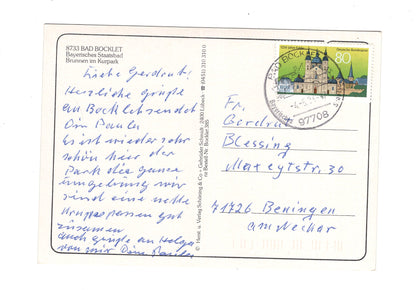 8733 BAD BOCKLET
Bayerisches Staatsbad
Brunnen im Kurpark
Liebe Gerdraut!
Herzliche Grüße
an Bocklet sendet
Dir Paula
Es ist wieder sehr
schön hier der
Park die ganze
umgebung wir
sind eine nette
Gruppe passen gut
zusammen
auch grüße an Holger
von mir Deine Paula
© Horst u. Verlag Schöning & Co + Gebrüder Schmidt · 2400 Lübeck
Deutsche Bundespost
80
BAD BOCKLET
97708
Fr.
Gerdra
Blessing
Maxeytstr. 30
71726 Beningen
am Neckar